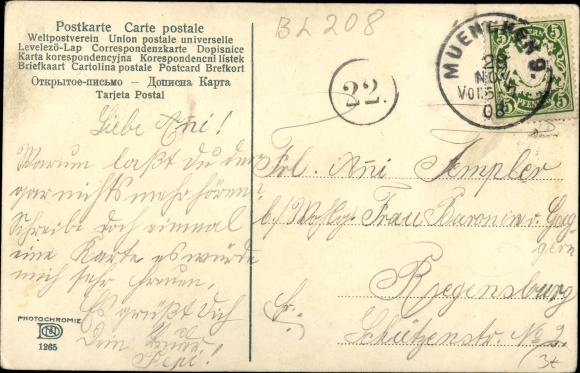 BL 208
Postkarte Carte postale
Weltpostverein Union postale universelle
Levelező-Lap Correspondenzkarte Dopisnice
Karta korespondencyjna Korespondenční lístek
Briefkaart Cartolina postale Postcard Brefkort
Открытое-письмо — Дописна Карта
Tarjeta Postal
Liebe Añi!
Warum laßt Du den
gar nichts mehr hören?
Schreibe doch einmal
eine Karte es würde
mich sehr freuen,
Es grüßt Dich
Dein
Pepi!
PHOTOCHROMIE
1265
22.
MUENCHEN 9.
29
NOV
Vor
08
5 5
PFENNIG
Frl. Añi Templer
b/ Frau Baronin v. Gag
gern
Regensburg
Fr:
Schützenstr. No 2.